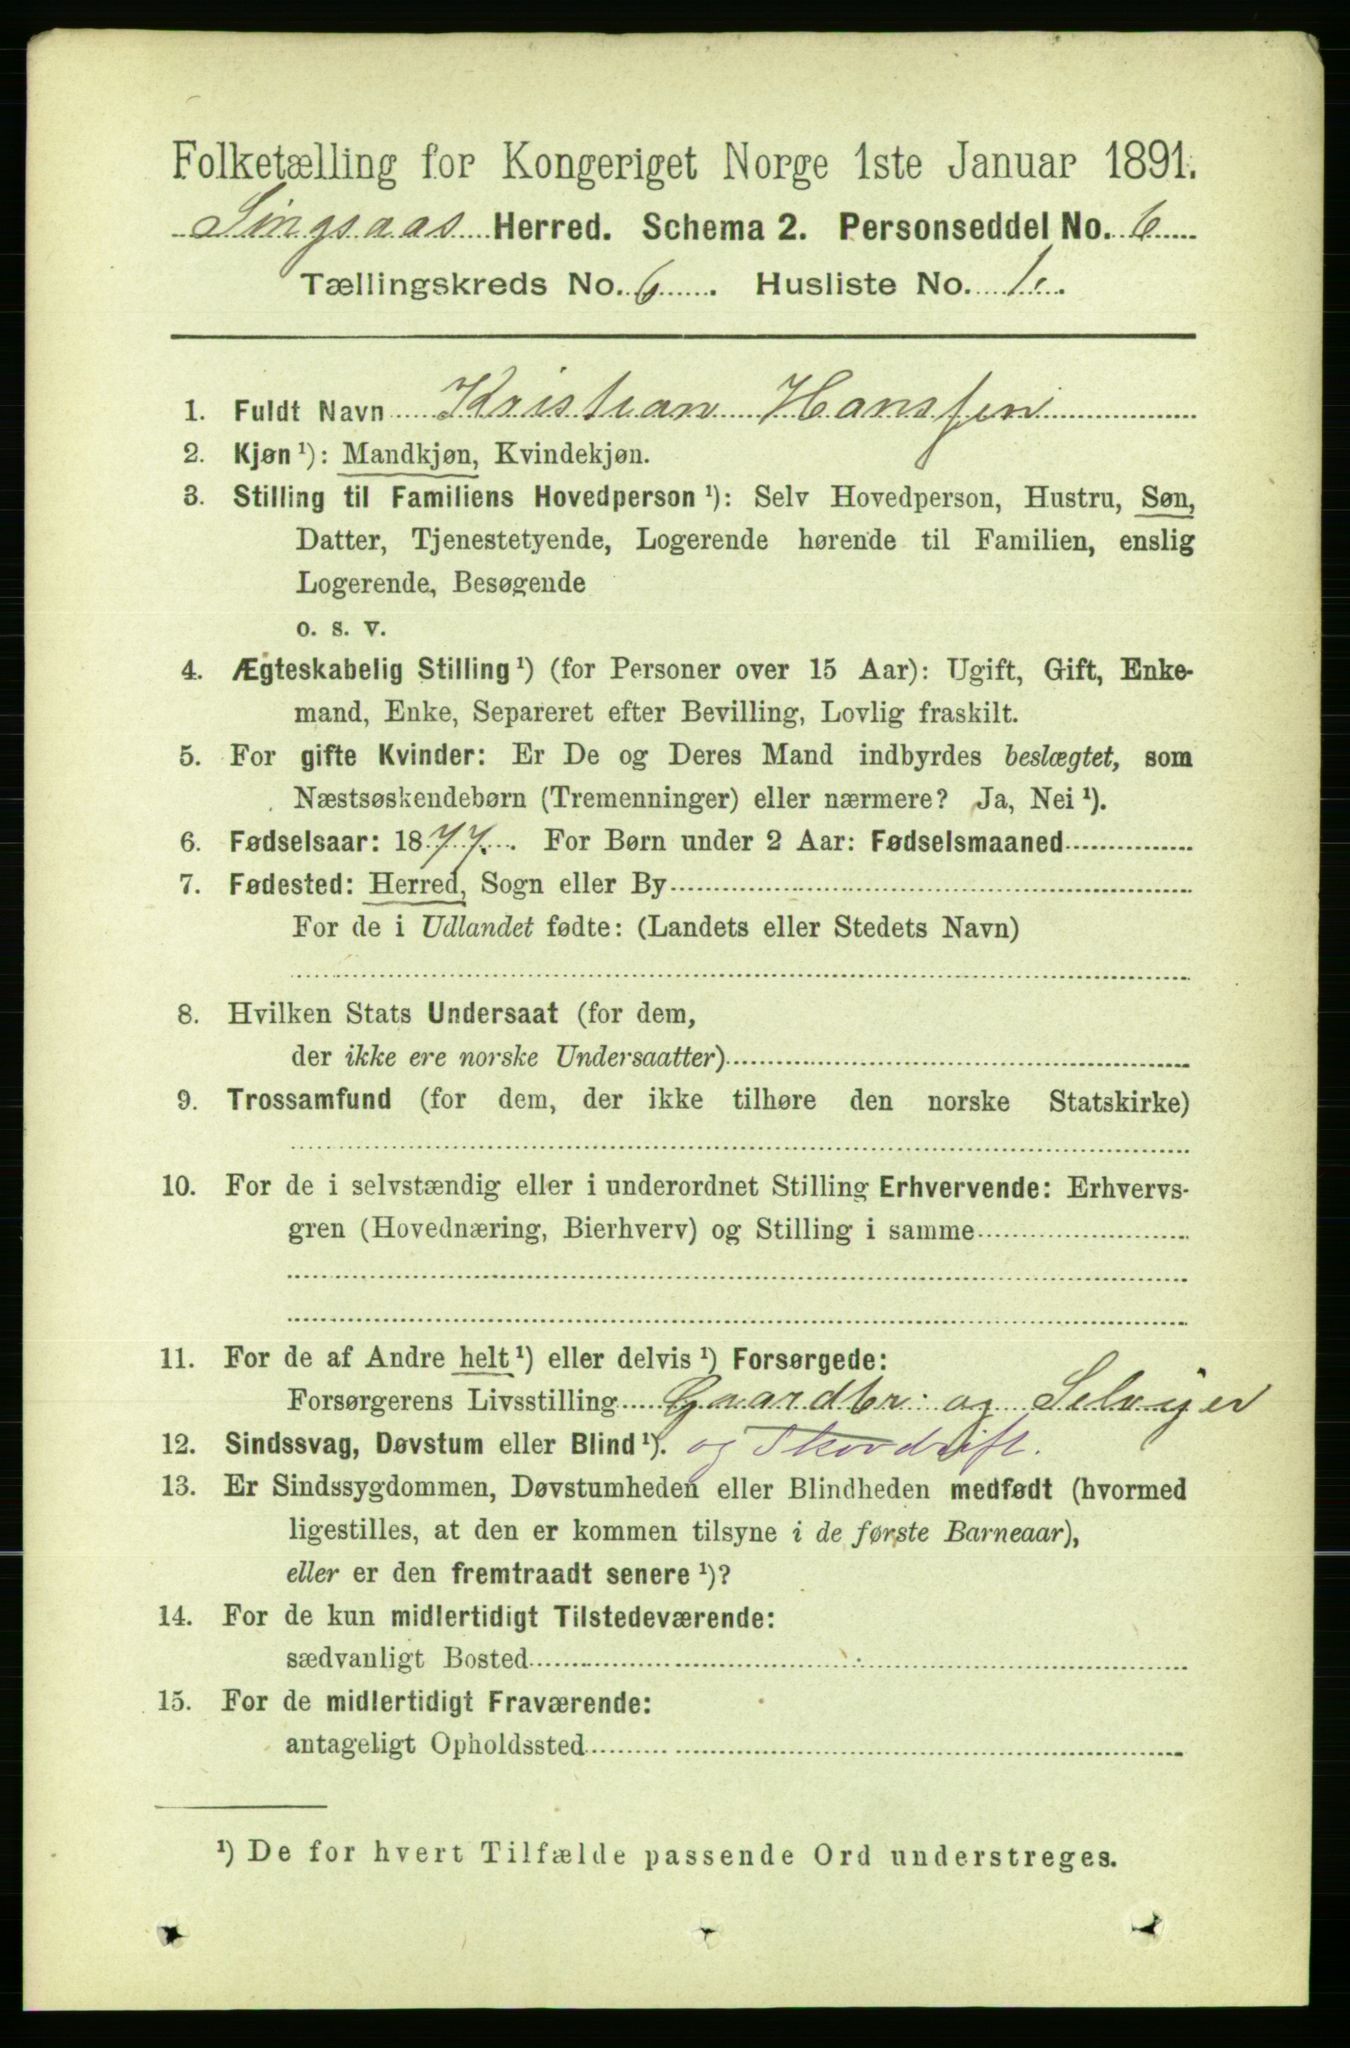 Folketælling for Kongeriget Norge 1ste Januar 1891.
Singsaas Herred. Schema 2. Personseddel No. 6
Tællingskreds No. 6. Husliste No. 1.
1. Fuldt Navn Kristian Hansen
2. Kjøn ¹): Mandkjøn, Kvindekjøn.
3. Stilling til Familiens Hovedperson ¹): Selv Hovedperson, Hustru, Søn,
Datter, Tjenestetyende, Logerende hørende til Familien, enslig
Logerende, Besøgende
o. s. v.
4. Ægteskabelig Stilling ¹) (for Personer over 15 Aar): Ugift, Gift, Enke-
mand, Enke, Separeret efter Bevilling, Lovlig fraskilt.
5. For gifte Kvinder: Er De og Deres Mand indbyrdes beslægtet, som
Næstsøskendebørn (Tremenninger) eller nærmere? Ja, Nei ¹).
6. Fødselsaar: 1877. For Børn under 2 Aar: Fødselsmaaned
7. Fødested: Herred, Sogn eller By
For de i Udlandet fødte: (Landets eller Stedets Navn)
8. Hvilken Stats Undersaat (for dem,
der ikke ere norske Undersaatter)
9. Trossamfund (for dem, der ikke tilhøre den norske Statskirke)
10. For de i selvstændig eller i underordnet Stilling Erhvervende: Erhvervs-
gren (Hovednæring, Bierhverv) og Stilling i samme
11. For de af Andre helt ¹) eller delvis ¹) Forsørgede:
Forsørgerens Livsstilling Gaardbr: og Selvejer
12. Sindssvag, Døvstum eller Blind ¹). og Skovdrift.
13. Er Sindssygdommen, Døvstumheden eller Blindheden medfødt (hvormed
ligestilles, at den er kommen tilsyne i de første Barneaar),
eller er den fremtraadt senere ¹)?
14. For de kun midlertidigt Tilstedeværende:
sædvanligt Bosted
15. For de midlertidigt Fraværende:
antageligt Opholdssted
¹) De for hvert Tilfælde passende Ord understreges.